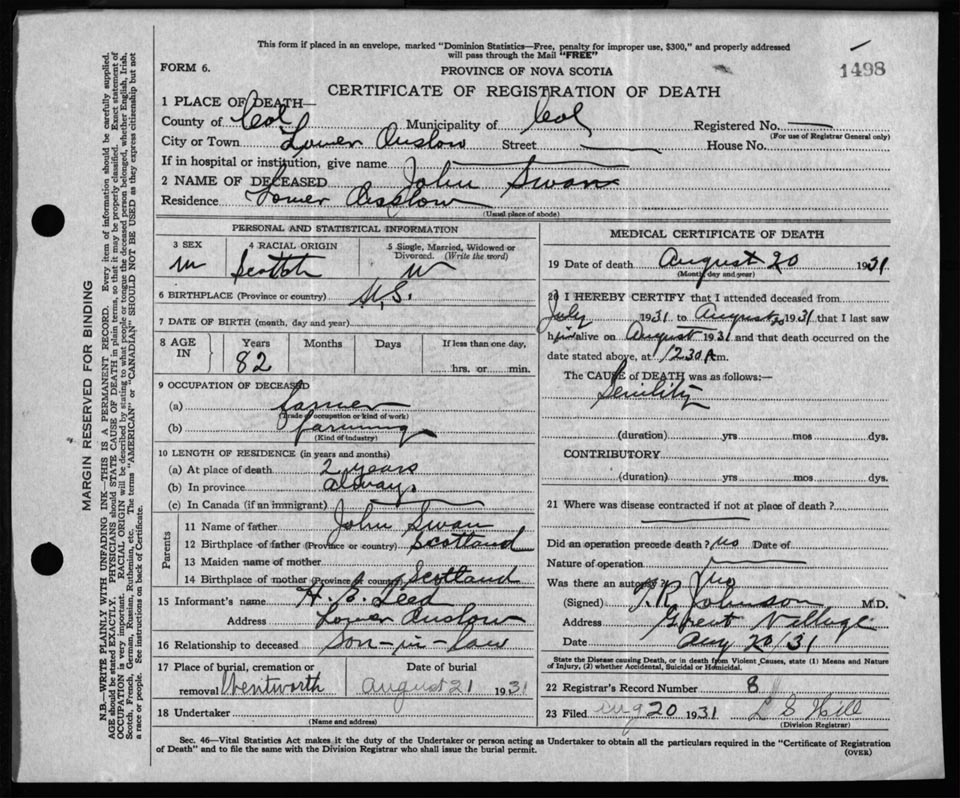 This form if placed in an envelope, marked "Dominion Statistics—Free, penalty for improper use, $300," and properly addressed
will pass through the Mail "FREE"
FORM 6.
PROVINCE OF NOVA SCOTIA
1498
CERTIFICATE OF REGISTRATION OF DEATH
1 PLACE OF DEATH—
County of Col Municipality of Col Registered No.
(For use of Registrar General only)
City or Town Lower Onslow Street House No.
If in hospital or institution, give name
2 NAME OF DECEASED John Swan
Residence Lower Onslow
(Usual place of abode)
PERSONAL AND STATISTICAL INFORMATION
3 SEX 4 RACIAL ORIGIN 5 Single, Married, Widowed or Divorced. (Write the word)
M Scottch W
6 BIRTHPLACE (Province or country) N.S.
7 DATE OF BIRTH (month, day and year)
8 AGE IN Years Months Days If less than one day,
82 hrs. or min.
9 OCCUPATION OF DECEASED
(a) farmer
(Trade, occupation or kind of work)
(b) farming
(Kind of industry)
10 LENGTH OF RESIDENCE (in years and months)
(a) At place of death 2 years
(b) In province always
(c) In Canada (if an immigrant)
Parents
11 Name of father John Swan
12 Birthplace of father (Province or country) Scotland
13 Maiden name of mother
14 Birthplace of mother (Province or country) Scotland
15 Informant's name H. E.
Address Lower Onslow
16 Relationship to deceased Son-in-law
17 Place of burial, cremation or Date of burial
removal Wentworth August 21 1931
18 Undertaker
(Name and address)
MEDICAL CERTIFICATE OF DEATH
19 Date of death August 20 1931
(Month, day and year)
20 I HEREBY CERTIFY that I attended deceased from
July 1931 to August 20 1931 that I last saw
him alive on August 1931 and that death occurred on the
date stated above, at 1230 A m.
The CAUSE of DEATH was as follows:—
Senility
(duration) yrs mos dys.
CONTRIBUTORY
(duration) yrs mos dys.
21 Where was disease contracted if not at place of death?
Did an operation precede death? No Date of
Nature of operation
Was there an autopsy? No
(Signed) T. R. Johnson M.D.
Address Great Village
Date Aug 20/31
State the Disease causing Death, or in death from Violent Causes, state (1) Means and Nature
of Injury, (2) whether Accidental, Suicidal or Homicidal.
22 Registrar's Record Number 8
23 Filed Aug 20 1931 L S Hill
(Division Registrar)
Sec. 46—Vital Statistics Act makes it the duty of the Undertaker or person acting as Undertaker to obtain all the particulars required in the "Certificate of Registration
of Death" and to file the same with the Division Registrar who shall issue the burial permit.
(OVER)
MARGIN RESERVED FOR BINDING
N.B.—WRITE PLAINLY WITH UNFADING INK—THIS IS A PERMANENT RECORD. Every item of information should be carefully supplied.
AGE should be stated EXACTLY. PHYSICIANS should STATE CAUSE OF DEATH in plain terms, so that it may be properly classified. Exact statement of
OCCUPATION is very important. RACIAL ORIGIN will be described by stating to what people or tongue the deceased person belonged, whether English, Irish,
Scotch, French, German, Russian, Ruthenian, etc. The terms "AMERICAN" or "CANADIAN" SHOULD NOT BE USED as they express citizenship but not
a race or people. See instructions on back of Certificate.